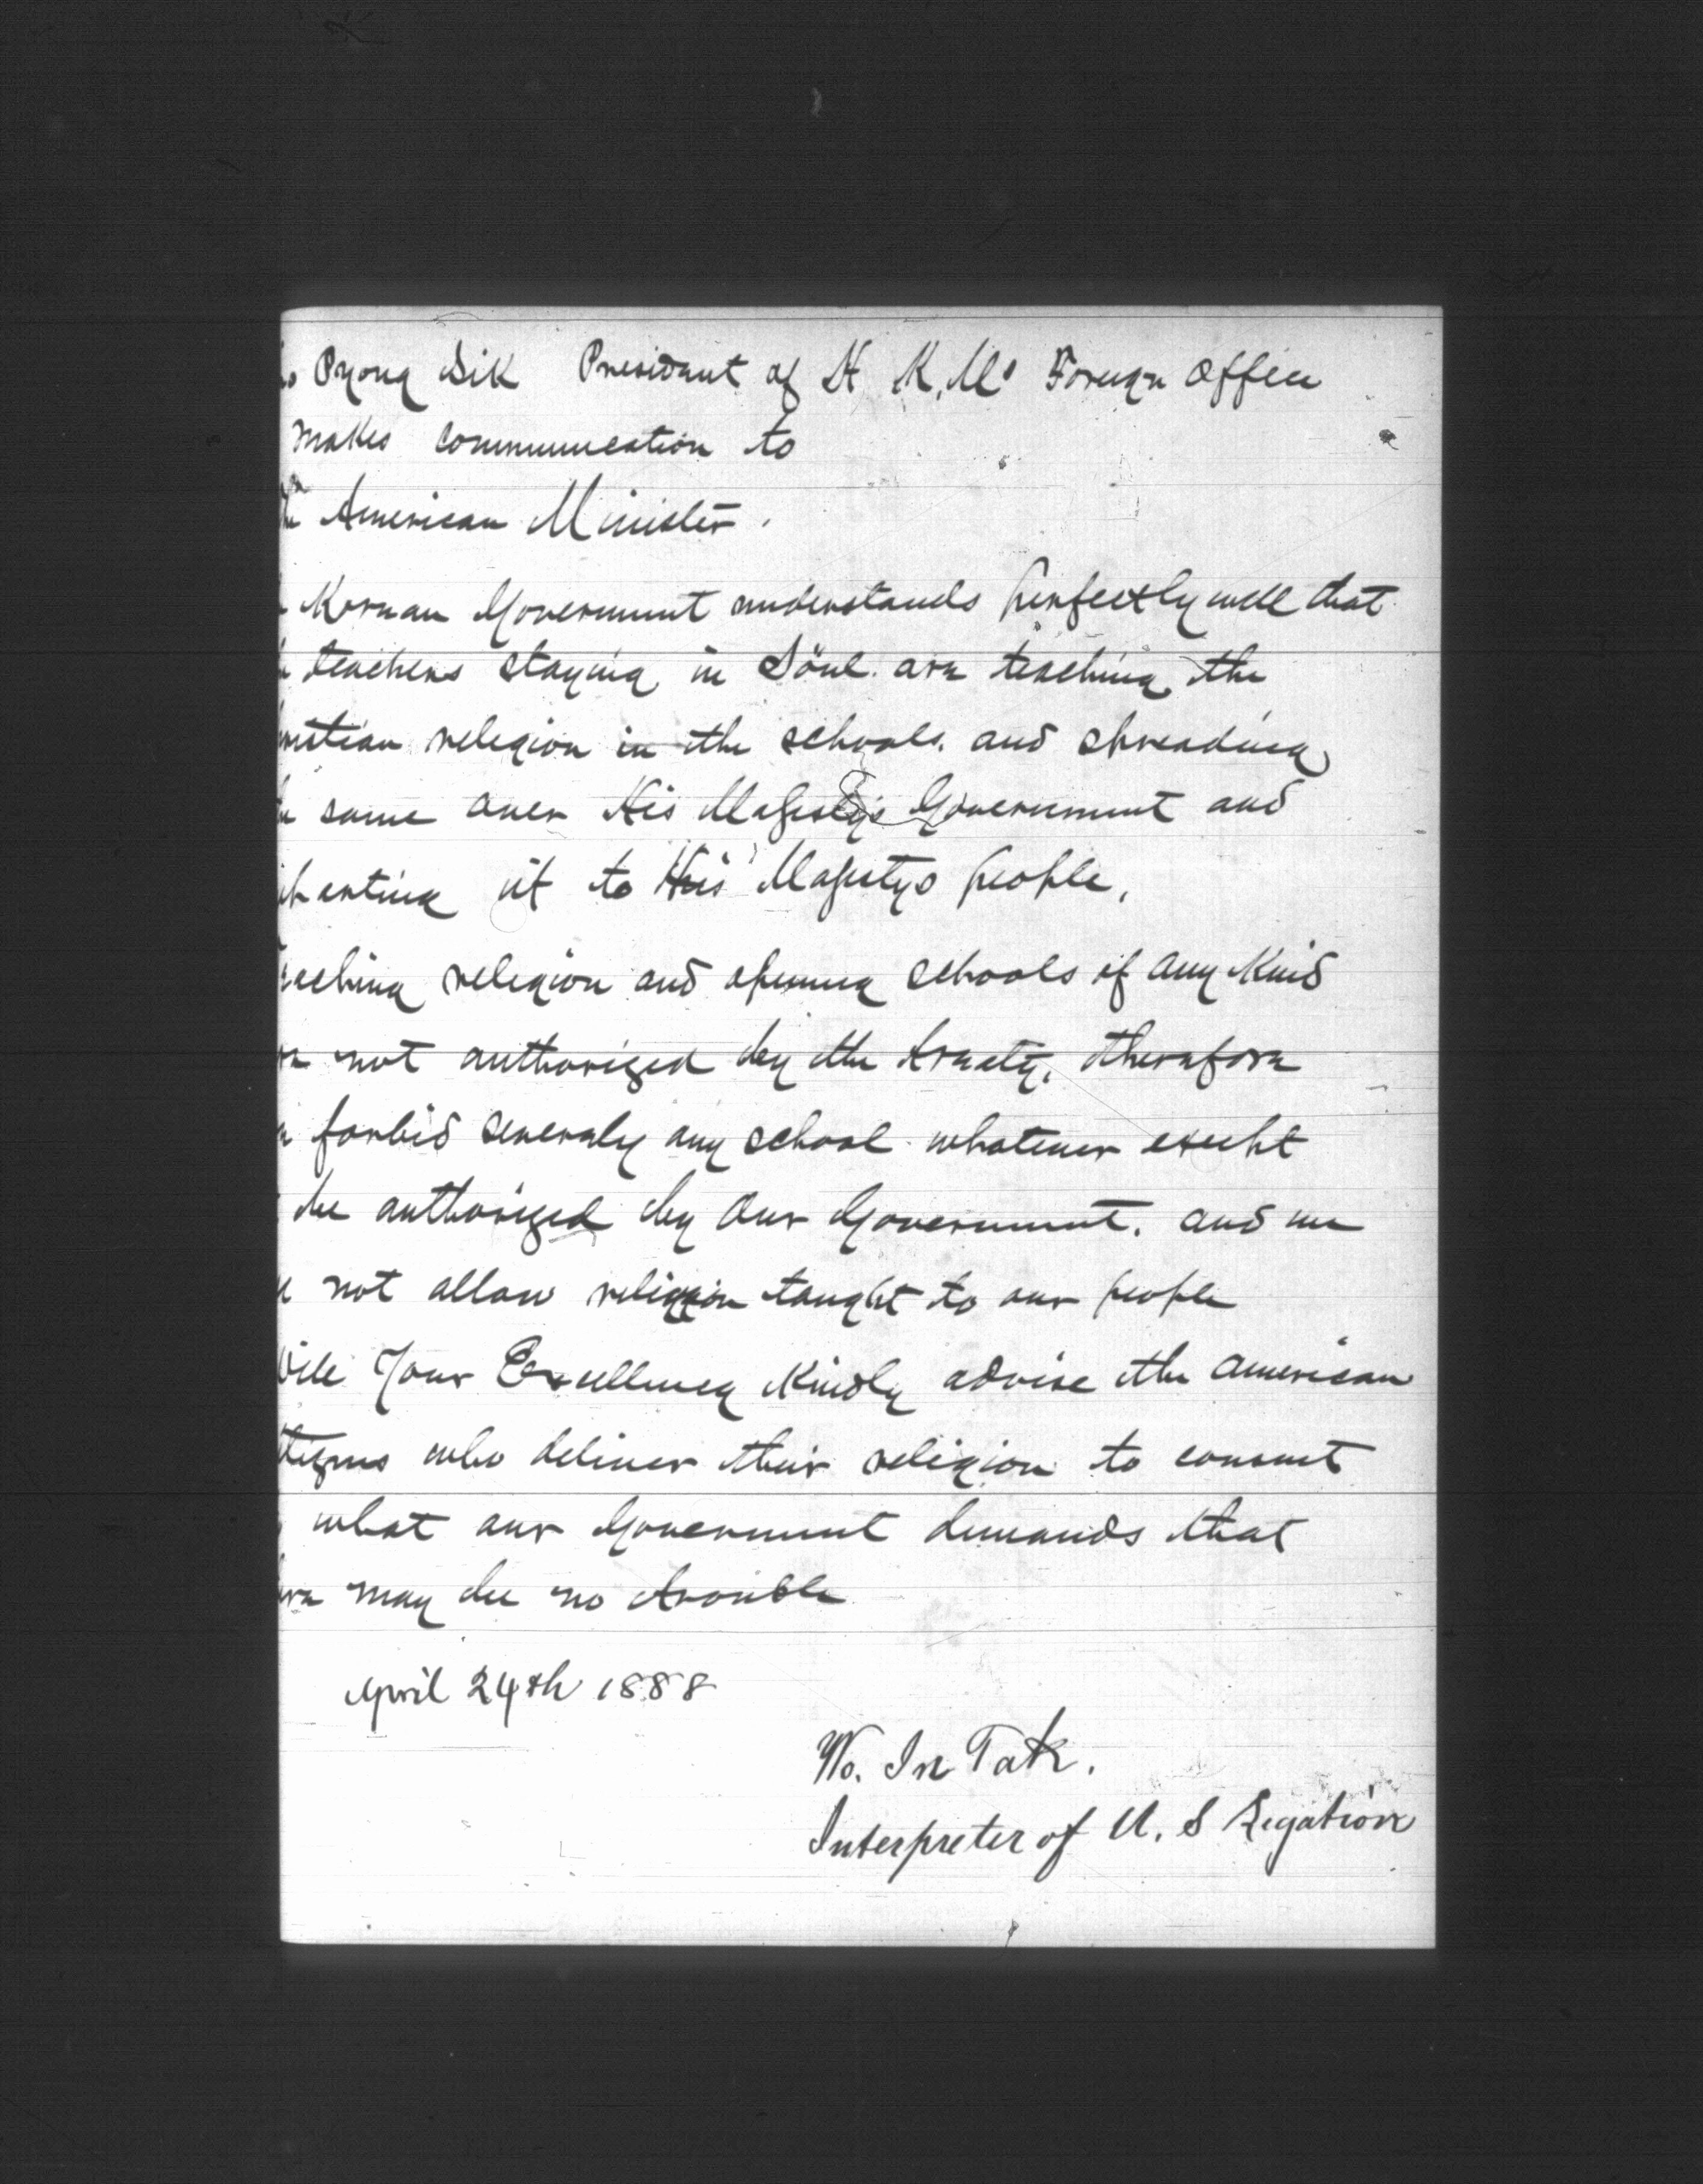 o Pyong Sik President of H K. Ms Foreign Office
makes communication to
American Minister.
Korean Government understands perfectly well that
teachers staying in Söul. are teaching the
istian religion in the schools. and spreading
same over His Majesty's Government and
parting it to His Majestys people.
eaching religion and opening schools of any kind
not authorized by the treaty. therefore
forbid severaly any school whatever except
be authorized by Our Government. and we
not allow religion taught to our people
Will Your Excellency kindly advise the American
tizens who deliver their religion to consent
what our Government demands that
may be no trouble
April 24th 1888
Wo. In Tak.
Interpreter of U. S Legation